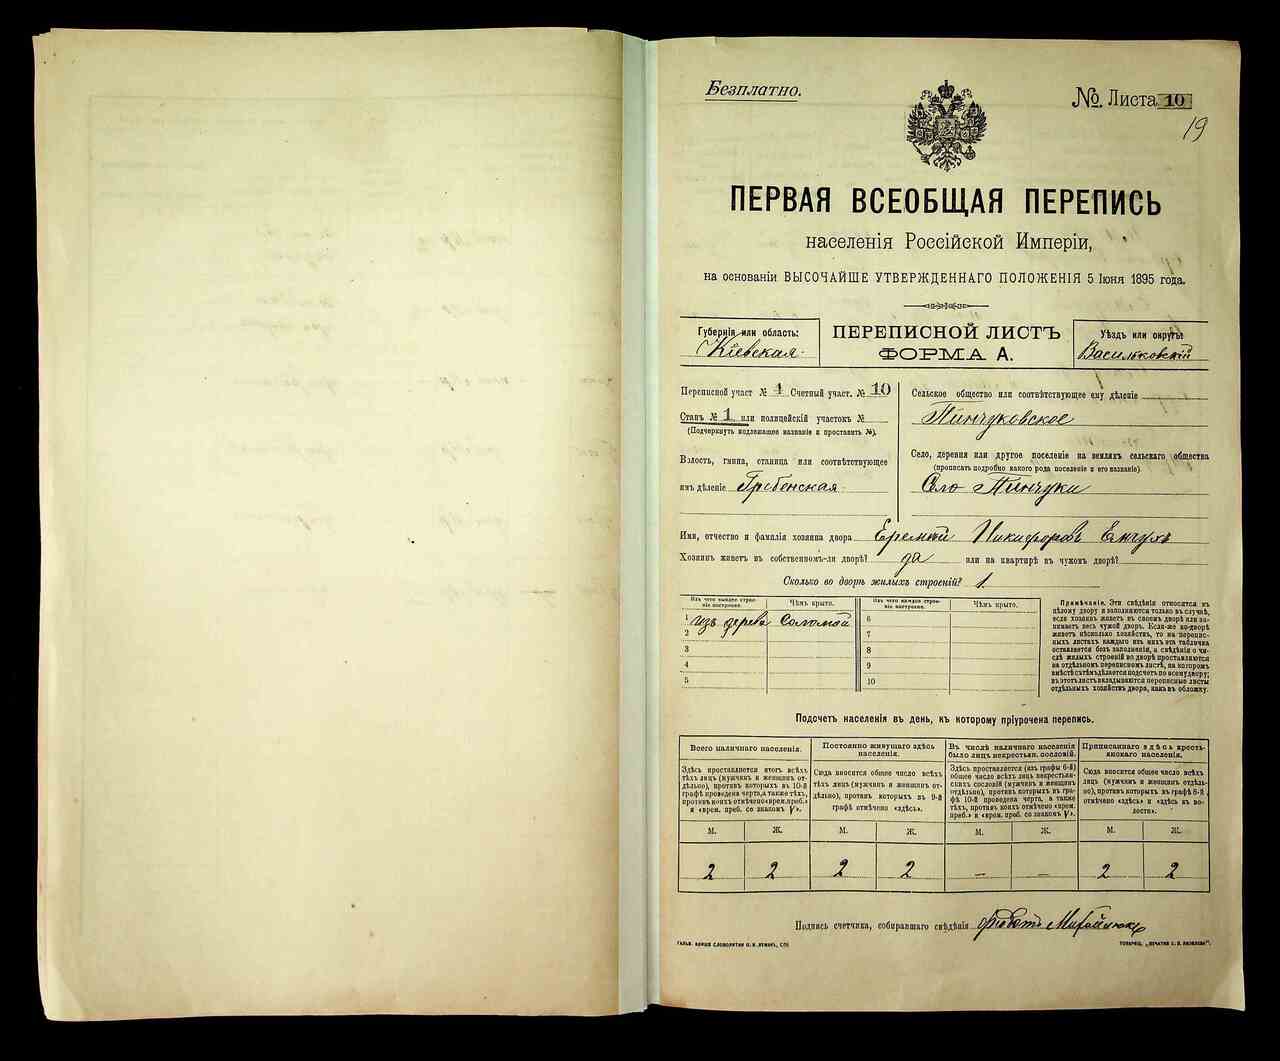 Безплатно.
№. Листа 10
19
ПЕРВАЯ ВСЕОБЩАЯ ПЕРЕПИСЬ
населенія Россійской Имперіи,
на основаніи ВЫСОЧАЙШЕ УТВЕРЖДЕННАГО ПОЛОЖЕНІЯ 5 Іюня 1895 года.
Губернія или область:
Кіевская
ПЕРЕПИСНОЙ ЛИСТЪ
ФОРМА А.
Уѣздъ или округъ:
Васильковскій
Переписной участ № 1 Счетный участ. № 10
Станъ № 1 или полицейскій участокъ №
(Подчеркнуть надлежащее названіе и проставить №).
Волость, гмина, станица или соотвѣтствующее
имъ дѣленіе Гребенская
Сельское общество или соотвѣтствующее ему дѣленіе
Пинчуковское
Село, деревня или другое поселеніе на земляхъ сельскаго общества
(прописать подробно какого рода поселеніе и его названіе)
Село Пинчуки
Имя, отчество и фамилія хозяина двора Еремій Никифоровъ
Хозяинъ живетъ въ собственномъ-ли дворѣ? да или на квартирѣ въ чужомъ дворѣ?
Сколько во дворѣ жилыхъ строеній? 1
Изъ чего каждое строеніе построено.
Чѣмъ крыто.
Изъ чего каждое строеніе построено.
Чѣмъ крыто.
1 изъ дерева соломой
2
3
4
5
6
7
8
9
10
Примѣчаніе. Эти свѣдѣнія относятся къ
цѣлому двору и заполняются только въ случаѣ,
если хозяинъ живетъ въ своемъ дворѣ или занимаетъ
весь чужой дворъ. Если-же во дворѣ
живетъ нѣсколько хозяйствъ, то на переписныхъ
листахъ каждаго изъ нихъ эта табличка
оставляется безъ заполненія, а свѣдѣнія о числѣ
жилыхъ строеній во дворѣ проставляются
на отдѣльномъ переписномъ листѣ, на которомъ
вмѣстѣ съ тѣмъ дѣлается подсчетъ по всему двору;
въ этотъ листъ вкладываются переписные листы
отдѣльныхъ хозяйствъ двора, какъ въ обложку.
Подсчетъ населенія въ день, къ которому пріурочена перепись.
Всего наличнаго населенія.
Постоянно живущаго здѣсь населенія.
Въ числѣ наличнаго населенія было лицъ некрестьян. сословій.
Приписаннаго здѣсь крестьянскаго населенія.
Здѣсь проставляется итогъ всѣхъ
тѣхъ лицъ (мужчинъ и женщинъ отдѣльно),
противъ которыхъ въ 10-й
графѣ проведена черта, а также тѣхъ,
противъ коихъ отмѣчено «врем. преб.»
и «врем. преб. со знакомъ V».
Сюда вносится общее число всѣхъ
тѣхъ лицъ (мужчинъ и женщинъ отдѣльно),
противъ которыхъ въ 9-й
графѣ отмѣчено «здѣсь».
Здѣсь проставляется (изъ графы 6-й)
общее число всѣхъ лицъ некрестьянскихъ
сословій (мужчинъ и женщинъ
отдѣльно), противъ которыхъ въ графѣ
10-й проведена черта, а также
тѣхъ, противъ коихъ отмѣчено «врем.
преб.» и «врем. преб. со знакомъ V».
Сюда вносится общее число всѣхъ
лицъ (мужчинъ и женщинъ отдѣльно),
противъ которыхъ въ графѣ 8-й
отмѣчено «здѣсь» и «здѣсь въ волости».
М. Ж. М. Ж. М. Ж. М. Ж.
2 2 2 2 – – 2 2
Подпись счетчика, собиравшаго свѣдѣнія